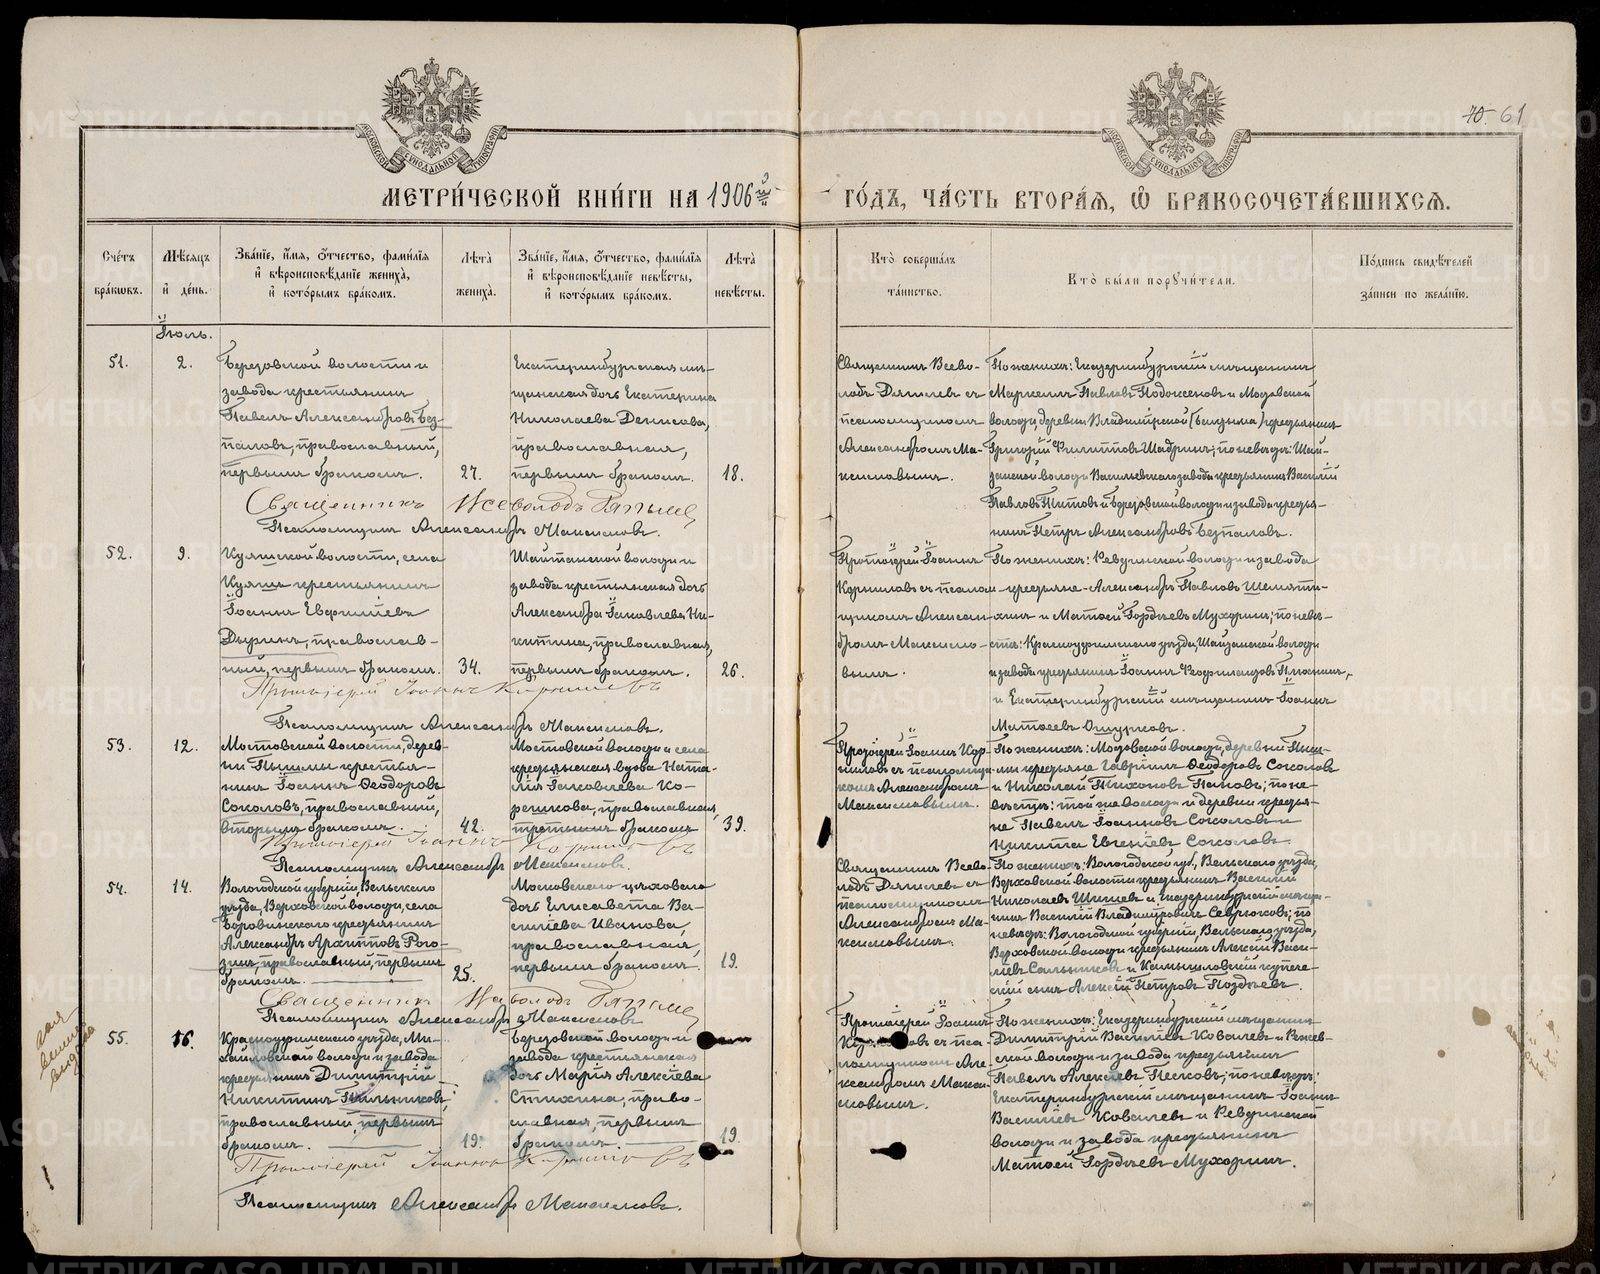 70. 61
МОСКОВСКОЙ СУНОДАЛЬНОЙ ТИПОГРАФІИ
МОСКОВСКОЙ СУНОДАЛЬНОЙ ТИПОГРАФІИ
МЕТРИ́ЧЕСКОЙ КНИ́ГИ НА 1906й
ГО́ДЪ, ЧА́СТЬ ВТОРА́Ѧ, Ѽ БРАКОСОЧЕТА́ВШИХСѦ.
Сче́тъ бра́кѡвъ.
Мѣ́сѧцъ и҆ де́нь.
Зва́нїе, и҆́мѧ, ѻ҆́тчество, фами́лїѧ
и҆ вѣроисповѣ́данїе жениха̀,
и҆ кото́рымъ бра́комъ.
Лѣ́та жениха̀.
Зва́нїе, и҆́мѧ, ѻ҆́тчество, фами́лїѧ
и҆ вѣроисповѣ́данїе невѣ́сты,
и҆ кото́рымъ бра́комъ.
Лѣ́та невѣ́сты.
Кто̀ соверша́лъ та́инство.
Кто̀ бы́ли порꙋчи́тели.
По́дпись свидѣ́телей за́писи по жела́нїю.
Іюль.
51.
2.
Березовской волости и
завода крестьянинъ
Павелъ Александровъ Без-
паловъ, православный,
первымъ бракомъ.
27.
Екатеринбургская мѣ-
щанская дочь Екатерина
Николаева Денисова,
православная,
первымъ бракомъ.
18.
Священникъ Всево-
лодъ Дягилевъ съ
псаломщикомъ
Александромъ Ма-
ксимовымъ.
По женихѣ: Екатеринбургскій мѣщанинъ
Маркелъ Павловъ Подоксеновъ и Мостовской
волости деревни Владимірской крестьянинъ
Григорій Филипповъ Шадринъ; по невѣстѣ:
волости завода крестьянинъ Василій
Павловъ Титовъ и Березовской волости и завода кресть-
янинъ Петръ Александровъ Безпаловъ.
Священникъ Всеволодъ Дягилевъ
Псаломщикъ Александръ Максимовъ.
52.
9.
Куяшской волости, села
Куяша крестьянинъ
Іоаннъ Евфиміевъ
православ-
ный, первымъ бракомъ.
34.
Шайтанской волости и
завода крестьянская дочь
Александра Іаковлева Ни-
китина, православная,
первымъ бракомъ.
26.
Протоіерей Іоаннъ
Корниловъ съ псалом-
щикомъ Алексан-
дромъ Максимо-
вымъ.
По женихѣ: Ревдинской волости и завода
крестьяне Александръ Павловъ
и Матѳей Гордѣевъ Мухоринъ; по невѣ-
стѣ: Красноуфимскаго уѣзда, Шайтанской волости
и завода крестьянинъ Іоаннъ
и Екатеринбургскій мѣщанинъ Іоаннъ
Матѳеевъ Ошурковъ.
Протоіерей Іоаннъ Корниловъ
Псаломщикъ Александръ Максимовъ.
53.
12.
Мостовской волости, дерев-
ни Пышмы крестья-
нинъ Іоаннъ Ѳеодоровъ
Соколовъ, православный,
вторымъ бракомъ.
42.
Мостовской волости и села
крестьянская вдова Ната-
лія Іаковлева Ко-
православная,
третьимъ бракомъ
39.
Протоіерей Іоаннъ Кор-
ниловъ съ псаломщи-
комъ Александромъ
Максимовымъ.
По женихѣ: Мостовской волости, деревни Пыш-
мы крестьяне Гавріилъ Ѳеодоровъ Соколовъ
и Николай Тихоновъ Пановъ; по не-
вѣстѣ: той же волости и деревни крестья-
не Павелъ Іоанновъ Соколовъ и
Никита Евгеніевъ Соколовъ.
Протоіерей Іоаннъ Корниловъ
Псаломщикъ Александръ Максимовъ.
54.
14.
Вологодской губерніи, Вельскаго
уѣзда, Верховской волости, села
Боровинскаго крестьянинъ
Александръ Архиповъ Рого-
зинъ, православный, первымъ
бракомъ.
25.
Московскаго цеховаго
дочь Елисавета Ва-
силіева Иванова,
православная,
первымъ бракомъ.
19.
Священникъ Всево-
лодъ Дягилевъ съ
псаломщикомъ
Александромъ Ма-
ксимовымъ.
По женихѣ: Вологодской губ., Вельскаго уѣзда,
Верховской волости крестьянинъ Василій
Николаевъ и Екатеринбургскій мѣща-
нинъ Василій Владиміровичъ Севрюковъ; по
невѣстѣ: Вологодской губерніи, Вельскаго уѣзда,
Верховской волости крестьянинъ Алексѣй Васи-
ліевъ Сальниковъ и Камышловскій купече-
скій сынъ Алексѣй Петровъ Поздѣевъ.
Священникъ Всеволодъ Дягилевъ
Псаломщикъ Александръ Максимовъ
55.
16.
Красноуфимскаго уѣзда, Ми-
хайловскаго волости и завода
крестьянинъ Димитрій
Никитинъ Пильниковъ,
православный, первымъ
бракомъ.
19.
Березовской волости и
завода крестьянская
дочь Марія Алексѣева
Стихина, право-
славная, первымъ
бракомъ.
19.
Протоіерей Іоаннъ
Корниловъ съ пса-
ломщикомъ Але-
ксандромъ Макси-
мовымъ.
По женихѣ: Екатеринбургскій мѣщанинъ
Димитрій Василіевъ Ковалевъ и Режев-
ской волости и завода крестьянинъ
Павелъ Алексѣевъ Песковъ; по невѣстѣ:
Екатеринбургскій мѣщанинъ Іоаннъ
Василіевъ Ковалевъ и Ревдинской
волости и завода крестьянинъ
Матѳей Гордѣевъ Мухоринъ.
Протоіерей Іоаннъ Корниловъ
Псаломщикъ Александръ Максимовъ.
METRIKI.GASO-URAL.RU